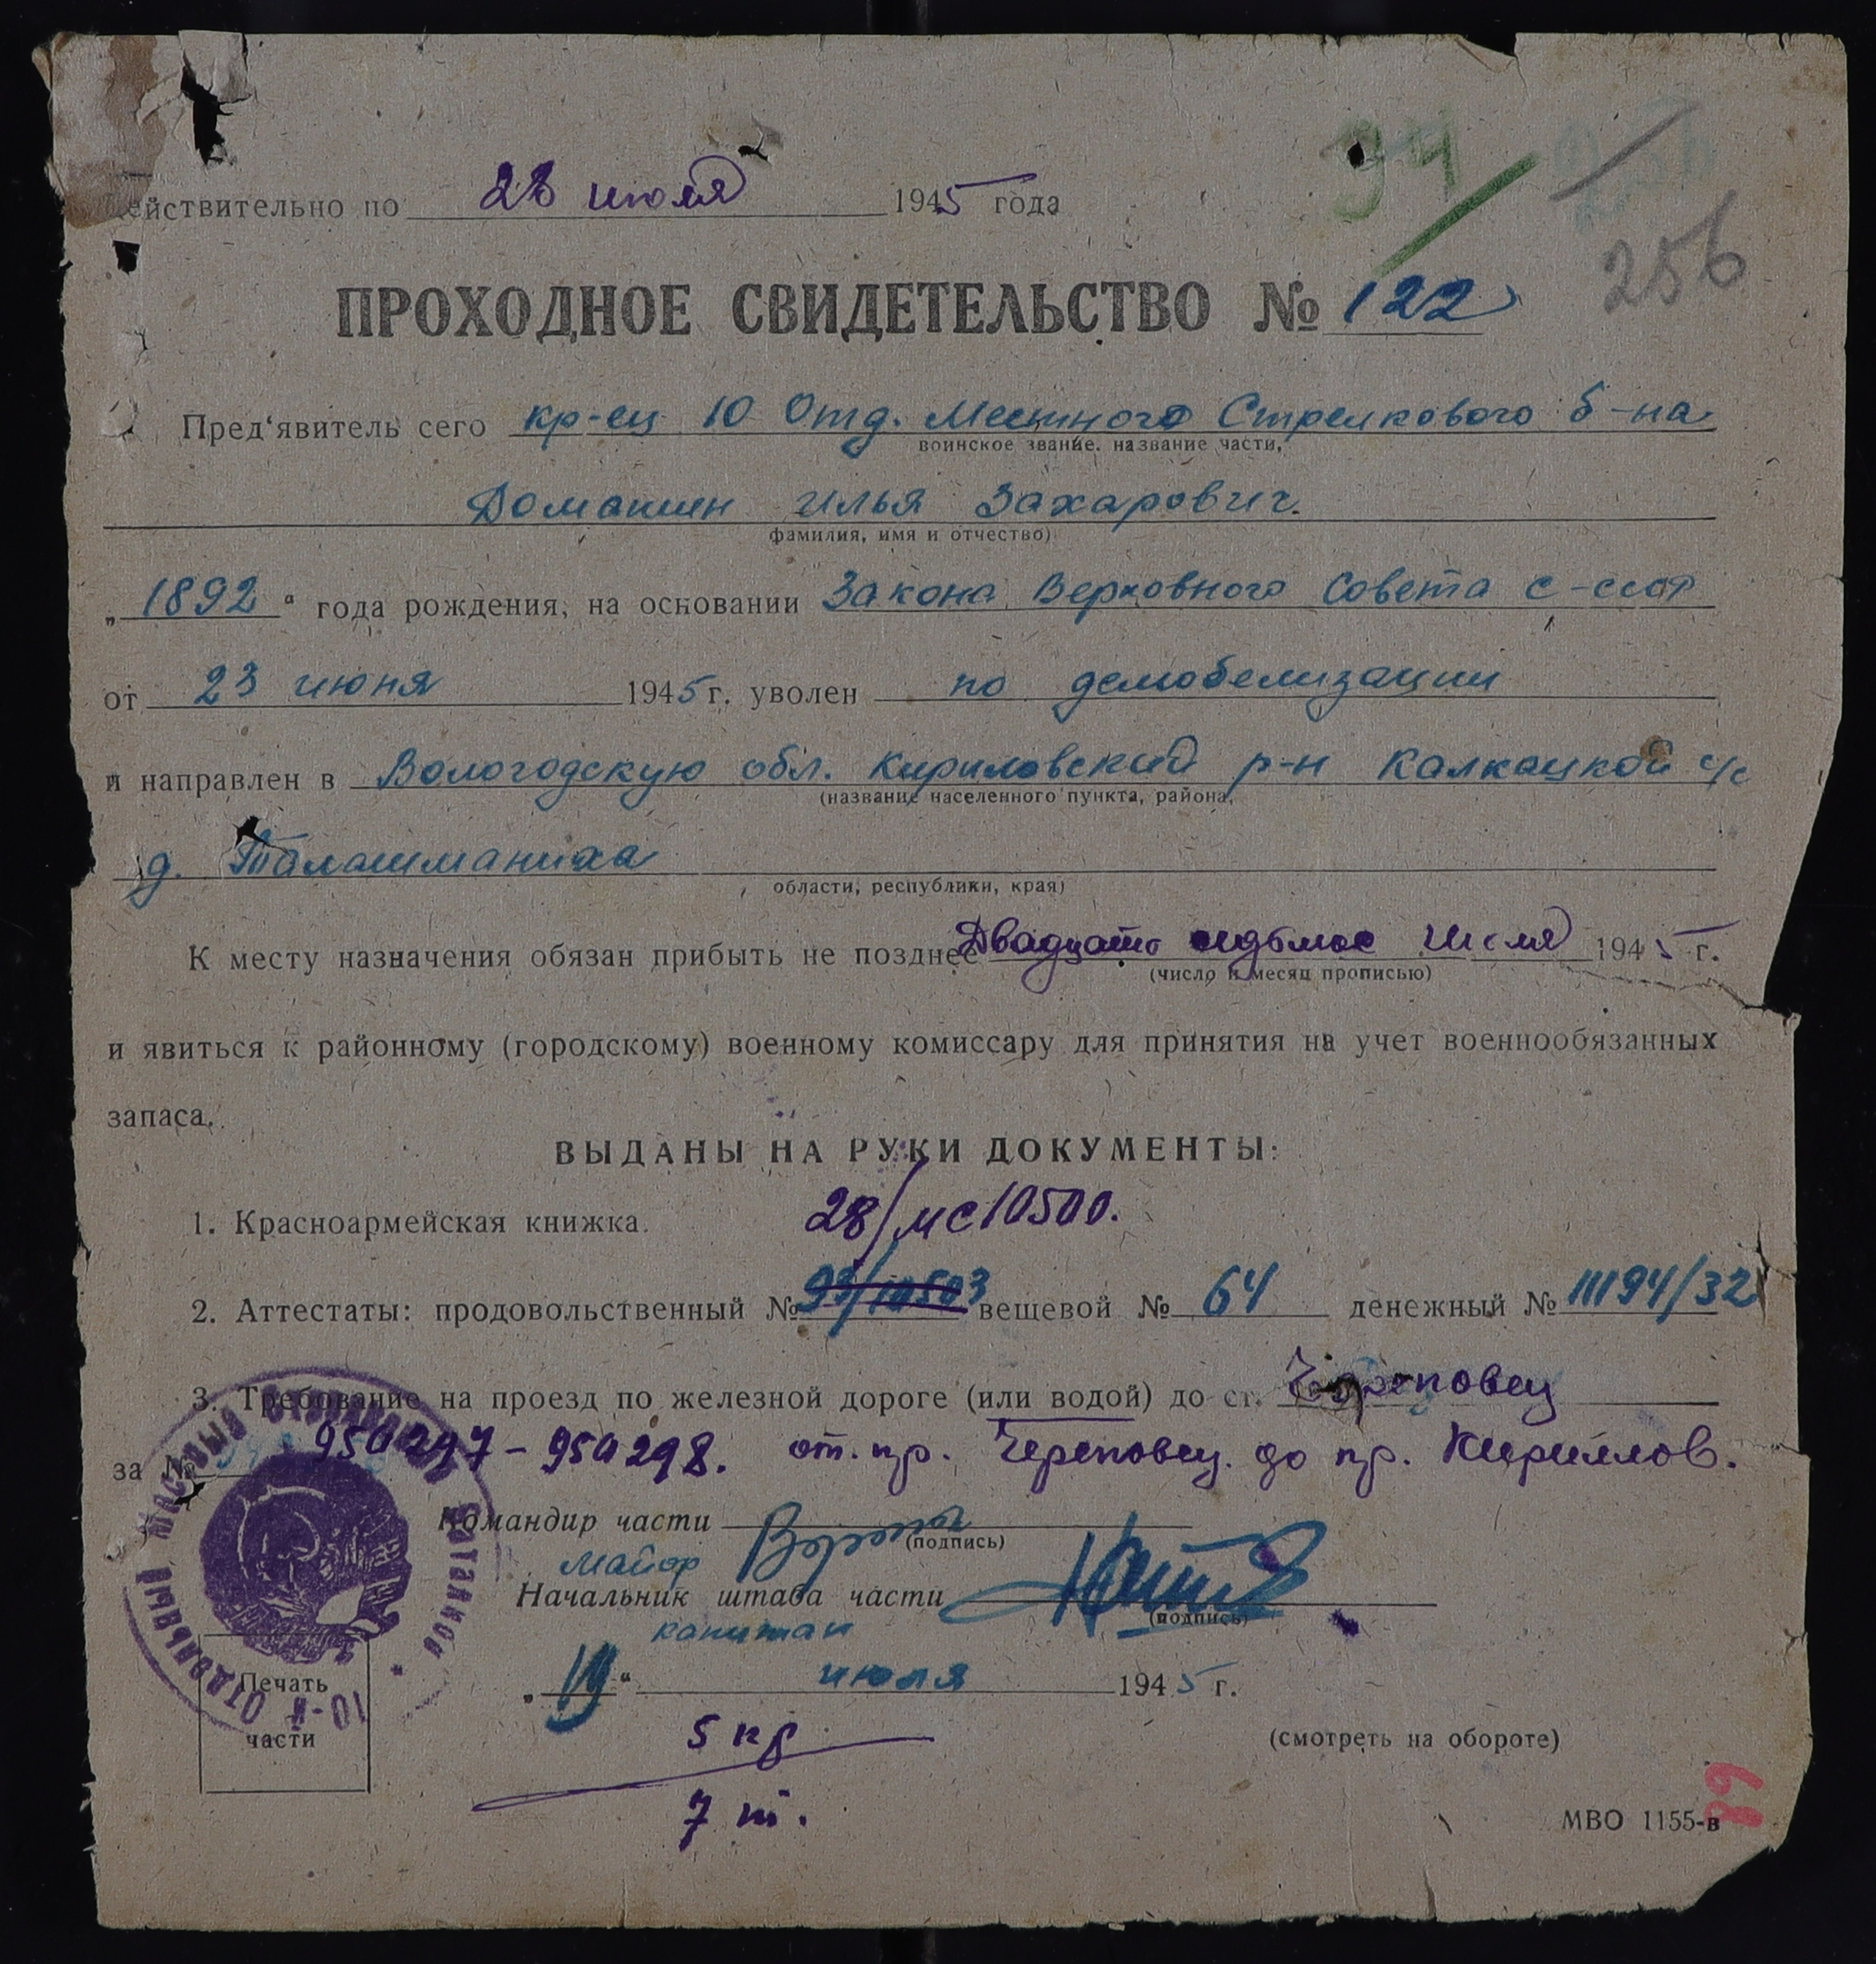 94
256
256
Действительно по 28 июля 1945 года
ПРОХОДНОЕ СВИДЕТЕЛЬСТВО № 122
Пред‘явитель сего кр-ец 10 Отд. Местного Стрелкового б-на
воинское звание. название части,
Домашин Илья Захарович.
фамилия, имя и отчество)
„1892“ года рождения, на основании Закона Верховного Совета С-ССР
от 23 июня 1945 г. уволен по демобелизации
и направлен в Вологодскую обл. Кириловский р-н Калкацкой с/с
(название населенного пункта, района,
д. Талашманиха
области, республики, края)
К месту назначения обязан прибыть не позднее Двадцать седьмое Июля 1945 г.
(число и месяц прописью)
и явиться к районному (городскому) военному комиссару для принятия на учет военнообязанных
запаса.
ВЫДАНЫ НА РУКИ ДОКУМЕНТЫ:
1. Красноармейская книжка. 28/мс10500.
2. Аттестаты: продовольственный № 93/10503 вещевой № 64 денежный № 11194/32
3. Требование на проезд по железной дороге (или водой) до ст. Череповец
за № 950297-950298. от. пр. Череповец. до пр. Кириллов.
Командир части
(подпись)
майор
Начальник штаба части
(подпись)
капитан
„19“ июля 1945 г.
Печать
части
10-й ОТДЕЛЬНЫЙ МЕСТНЫЙ СТРЕЛКОВЫЙ БАТАЛЬОН *
5 кг
(смотреть на обороте)
7 т.
89
МВО 1155-в